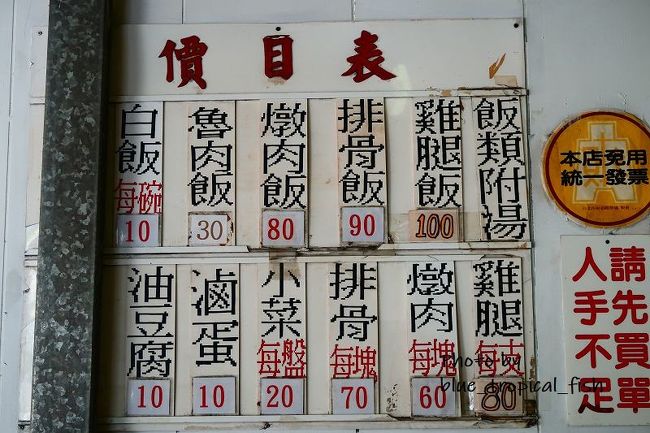 價目表
白飯
每碗
10
魯肉飯
30
燉肉飯
80
排骨飯
90
雞腿飯
100
飯類附湯
油豆腐
10
滷蛋
10
小菜
每盤
20
排骨
每塊
70
燉肉
每塊
60
雞腿
每支
80
本店免用
統一發票
請先買單
人手不足
Photo by
blue_tropical_fish